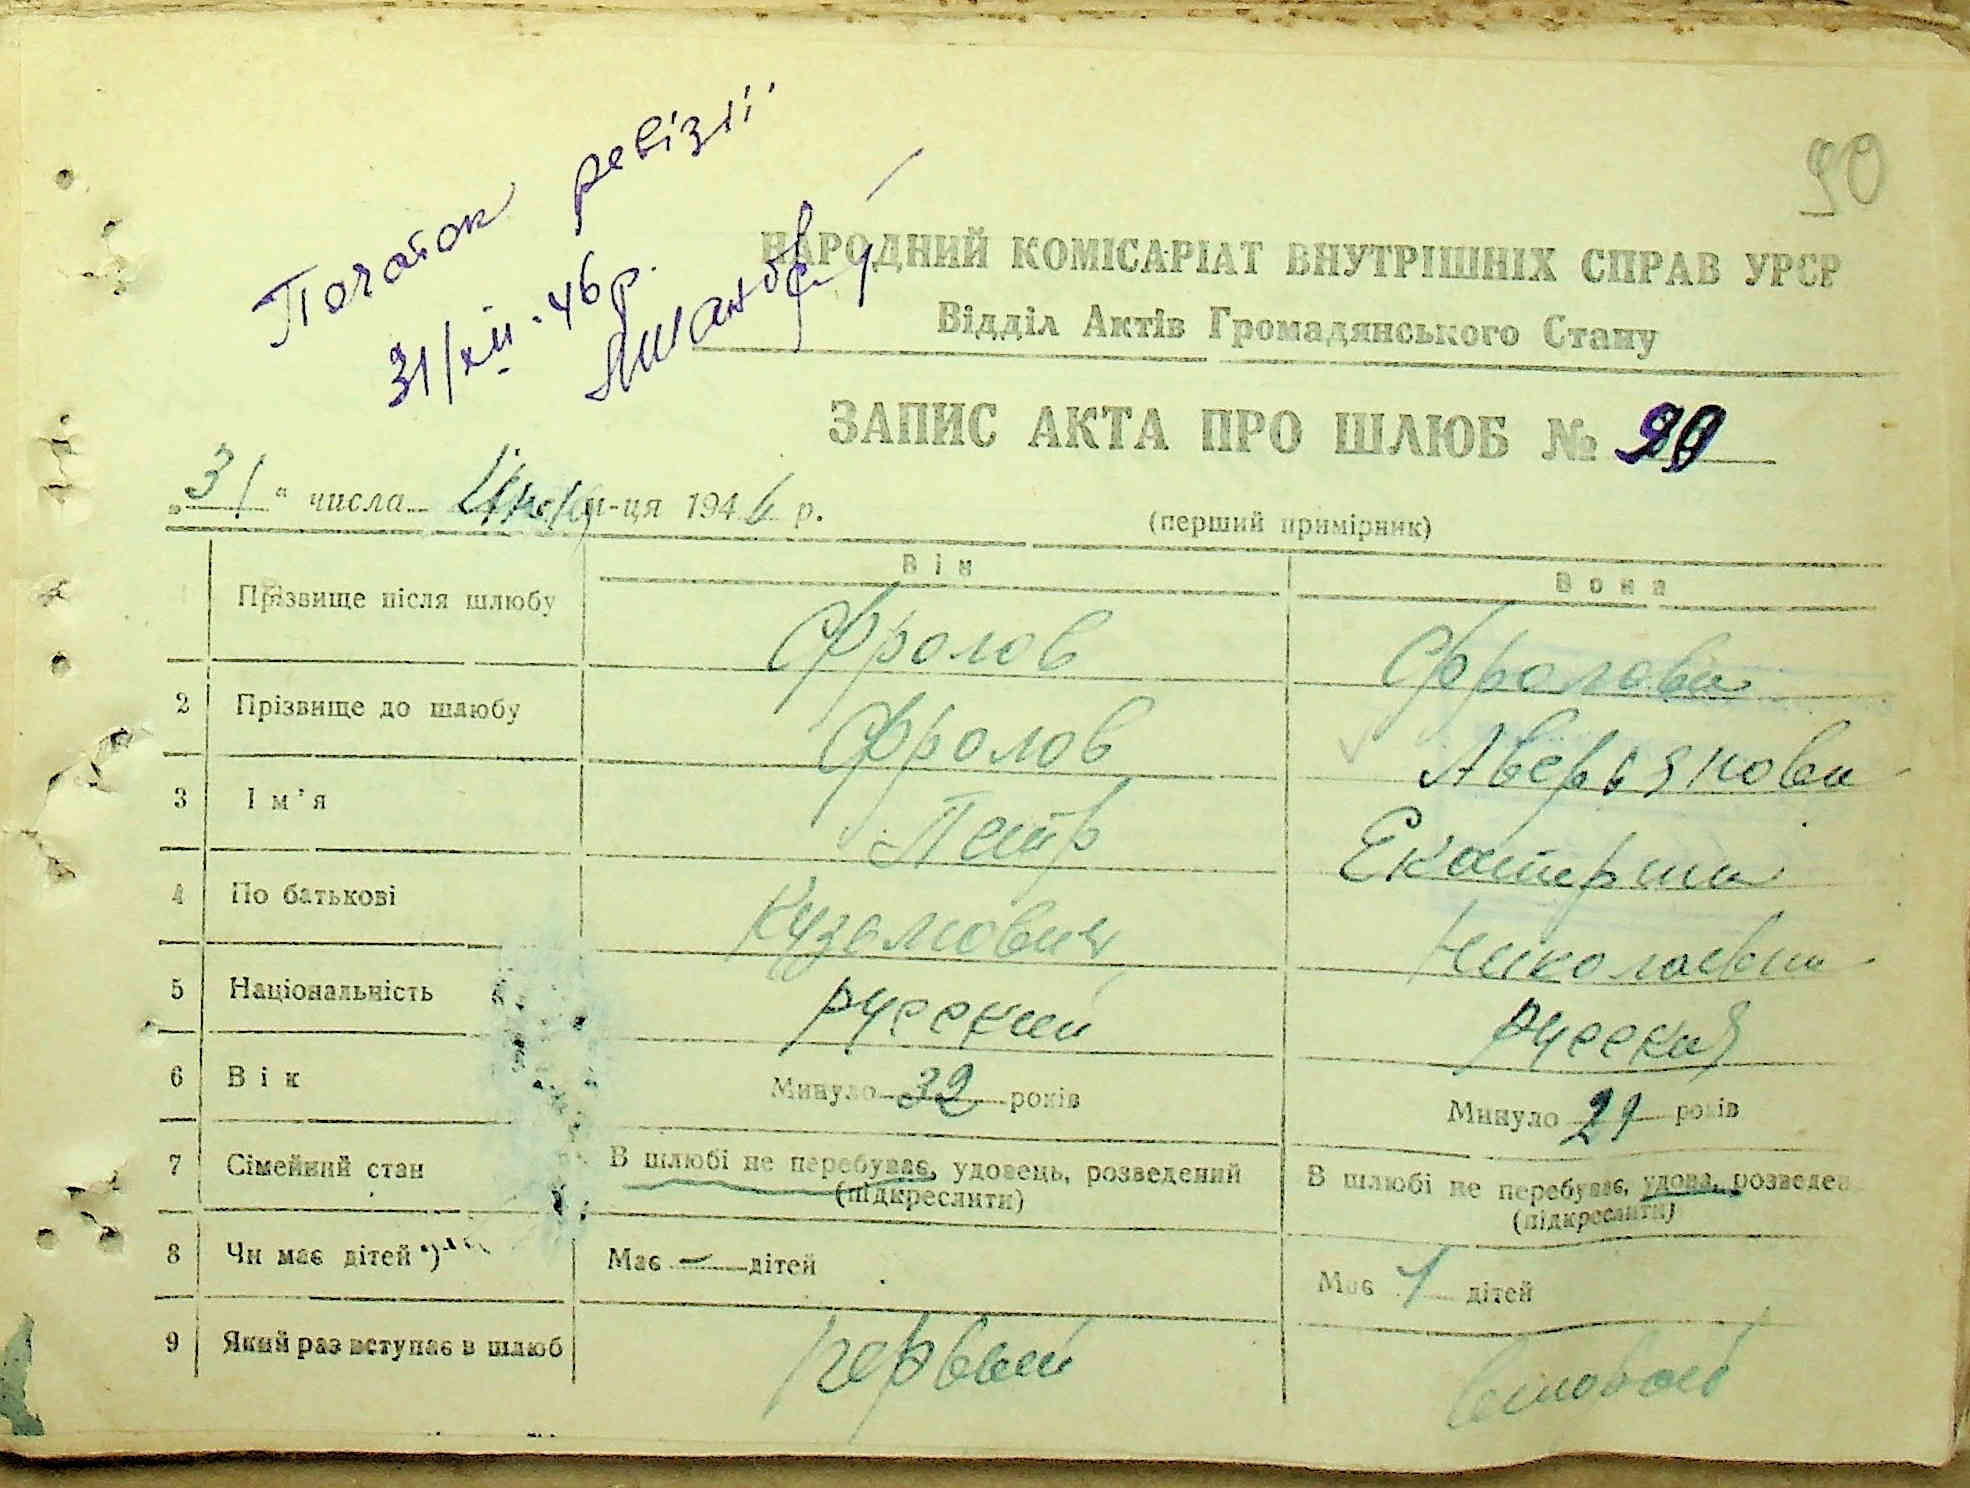 90
Початок ревізії
31/XII-46р.
НАРОДНИЙ КОМІСАРІАТ ВНУТРІШНІХ СПРАВ УРСР
Відділ Актів Громадянського Стану
ЗАПИС АКТА ПРО ШЛЮБ № 90
„31“ числа м-ця 1944 р.
(перший примірник)
Він Вона
1 Прізвище після шлюбу Фролов Фролова
2 Прізвище до шлюбу Фролов Аверьянова
3 Ім'я Петр Екатерина
4 По батькові Кузьмович Николаевна
5 Національність русский русская
6 Вік Минуло 32 років Минуло 21 років
7 Сімейний стан В шлюбі не перебуває, удовець, розведений В шлюбі не перебуває, удова, розведен
(підкреслити) (підкреслити)
8 Чи має дітей *) Має – дітей Має 1 дітей
9 Який раз вступає в шлюб первый второй